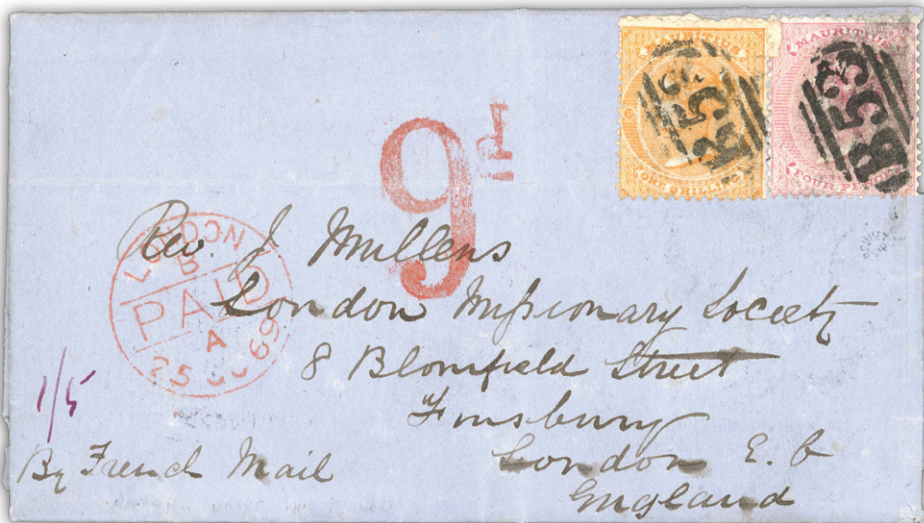 MAURITIUS
ONE SHILLING
B53
MAURITIUS
FOUR PENCE
B53
9d
LONDON
B
PAID
A
25 69
Rev. J Mullens
London Missionary Society
8 Blomfield Street
Finsbury
London E. C
England
1/5
By French Mail